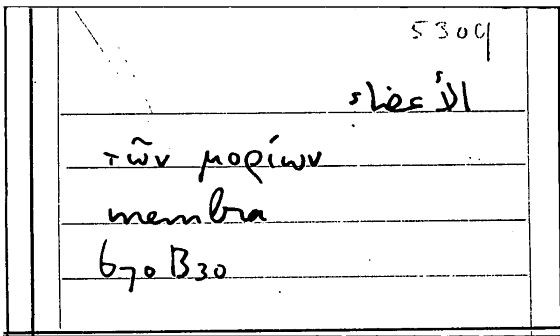 5304
الأعضاء
τῶν μορίων
membra
670B30